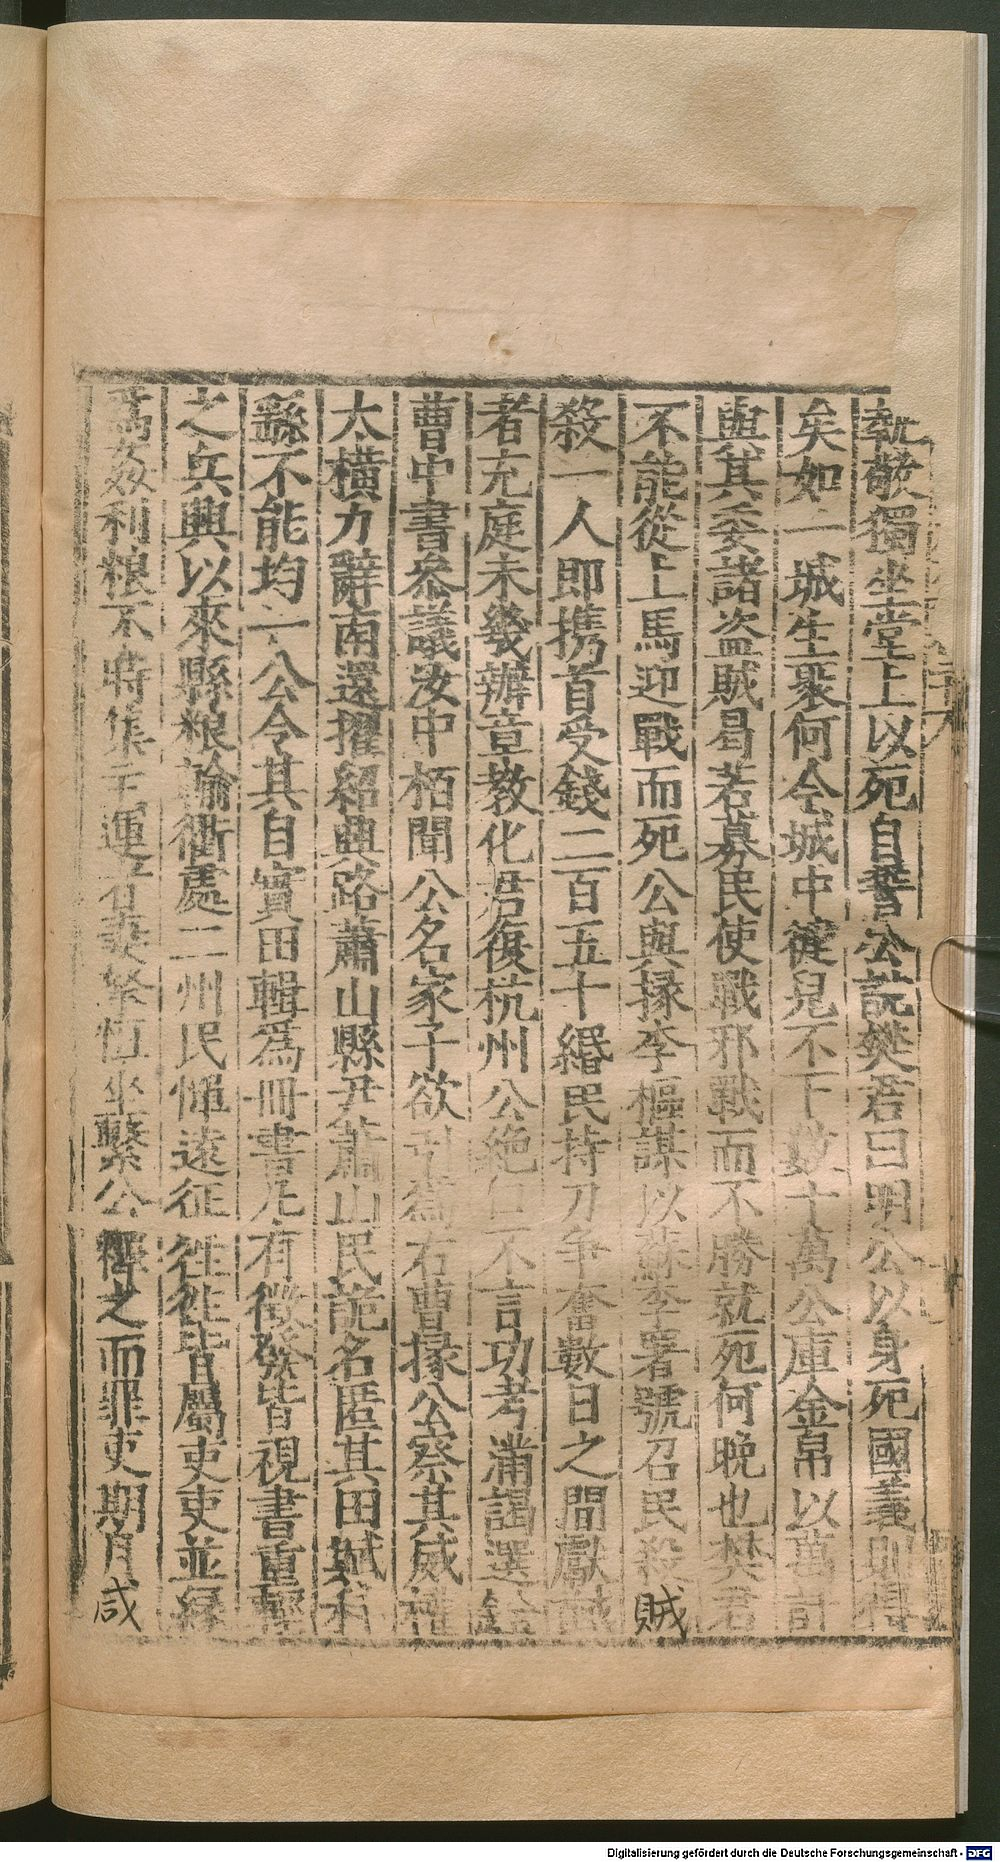 執敬獨坐堂上以死自誓公説樊君曰明公以身死國義則得
矣如一城生聚何今城中健兒不下數十萬公庫金帛以萬計
與其委諸盗賊曷若募民使戰邪戰而不勝就死何晚也樊君
不能從上馬迎戰而死公與掾李樞謀以蘇李署號召民殺賊
殺一人即携首受錢二百五十緡民持刀争奮數日之間獻馘
者充庭未幾辦章教化君復杭州公絶口不言功考滿謁選
曹中書叅議汝中栢聞公名家子欲引為右曹掾公察其威權
太橫力辭南還擢紹興路蕭山縣尹蕭山民詭名匿其田賦科
繇不能均一公令其自實田輯為冊書凡有徵發皆視書重輕
之兵興以來縣粮輸衢處二州民憚遠征徃徃皆屬吏吏並緣
為姦利粮不時集主運者坐繫公釋之而罪吏期月咸
Digitalisierung gefördert durch die Deutsche Forschungsgemeinschaft - DFG